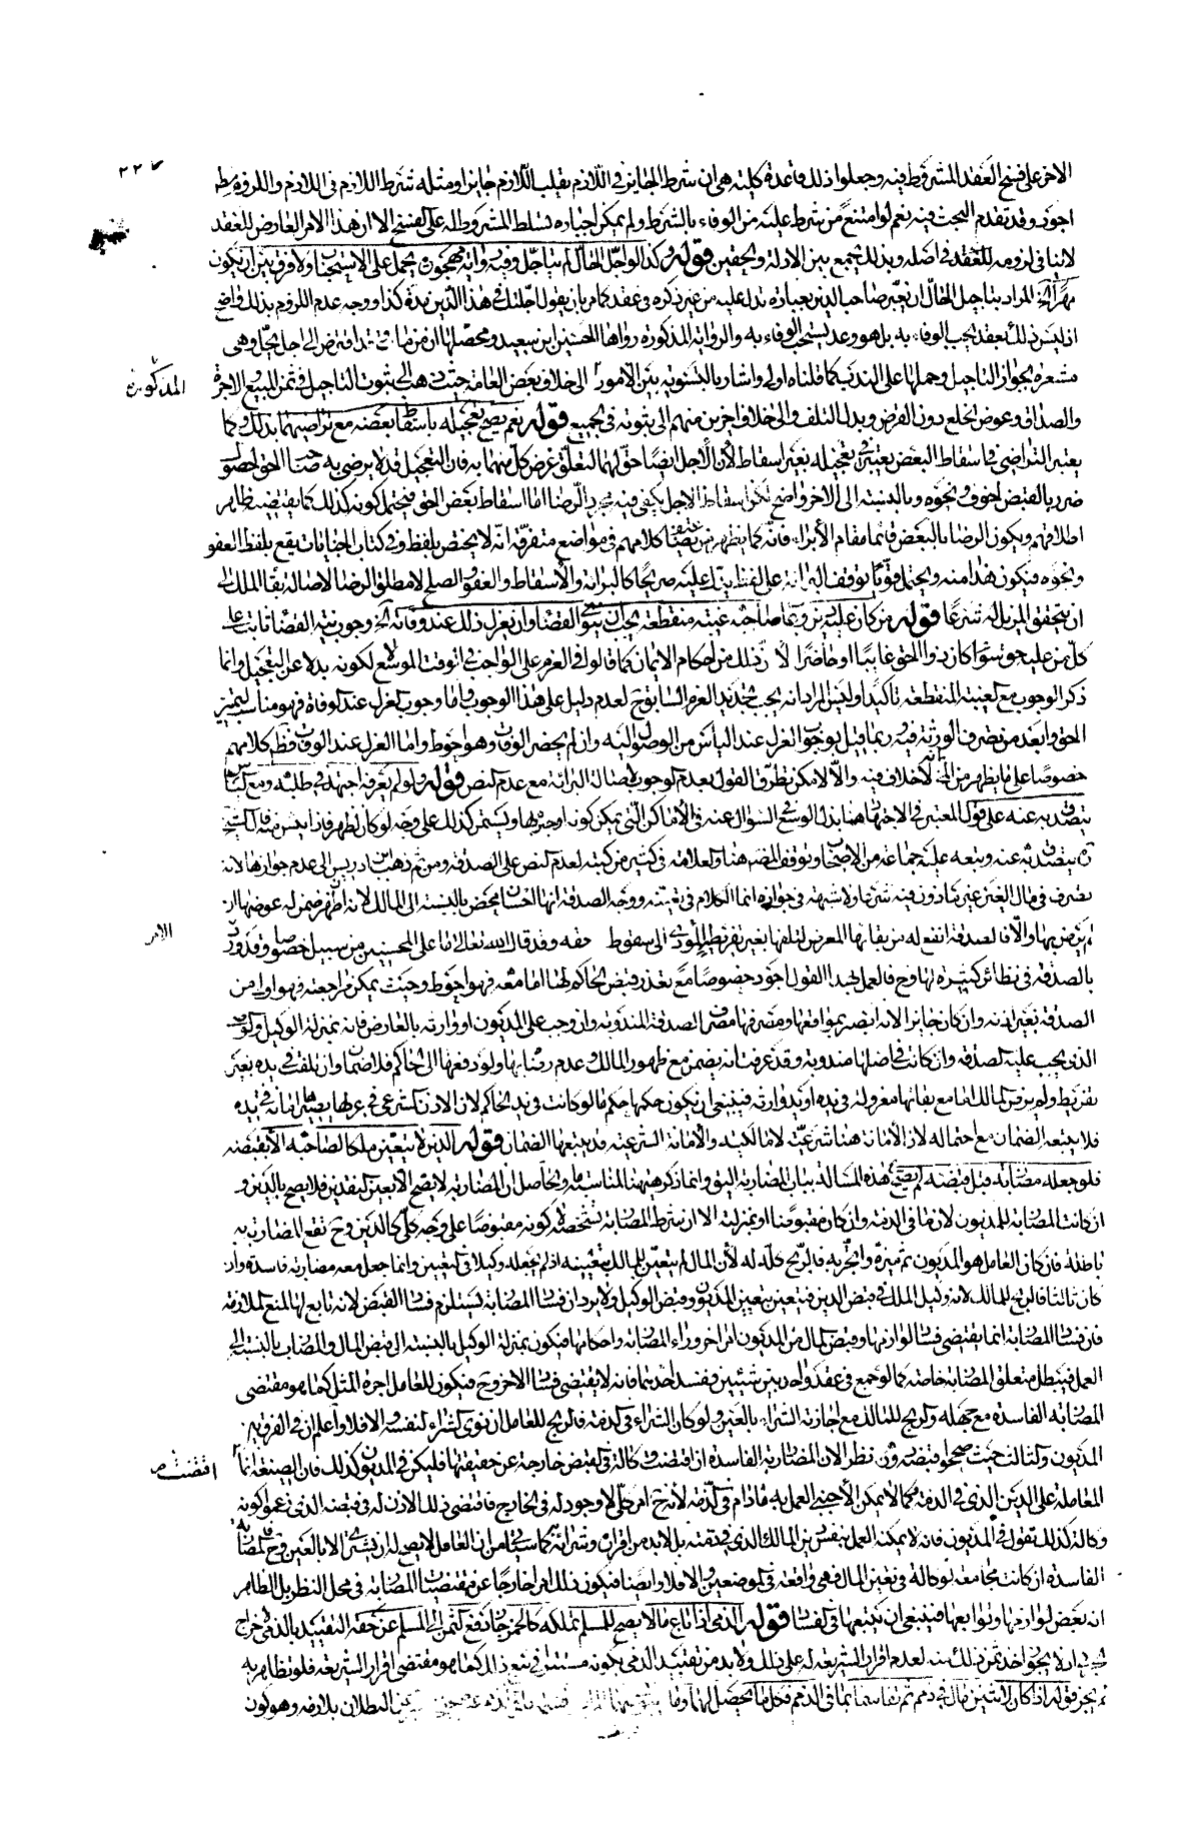 ٢٢٧
الاخر على فسخ العقد المشروط فيه وجعلوا ذلك قاعدة كلية هى ان شرط الجايز فى اللازم يقلب اللازم جايزا ومثله شرط اللازم فى اللازم واللزوم مط
اجود وقد تقدم البحث فيه نعم لو امتنع من شرط عليه من الوفاء بالشرط ولم يمكن اجباره تسلط المشروط له على الفسخ الا ان هذا الامر العارض للعقد
لا ينافى لزومه للعقد فى اصله وبذلك يجمع بين الادلة ويحقين قوله وكذا لو اجل الحال لم يتاجل وفيه رواية مهجورة يحمل على الاستحباب ولا فرق بين ان يكون
مهرا الخ المراد بتاجيل الحال ان يعبر صاحب الدين بعبارة تدل عليه من غير ذكره فى عقد كما مر بان يقول اجلتك فى هذا الدين مدة كذا ووجه عدم اللزوم بذلك واضح
اذ ليس ذلك بعقد يجب الوفاء به بل هو وعد يستحب الوفاء به والرواية المذكورة رواها الحسين بن سعيد ومحصلها ان من مات وقد اقترض الى اجل يحل وهى
مشعرة بجواز التاجيل وحملها على الندب كما قلناه اولى واشار بالتسوية بين الامور الى خلاف بعض العامة حيث ذهب الى ثبوت التاجيل فى ثمن المبيع والاجرة
المذكورة
والصداق وعوض الخلع دون القرض وبدل التلف والى خلاف اخرين منهم الى ثبوته فى الجميع قوله نعم يصح تعجيله باسقاط بعضه مع تراضيهما بذلك وكما
يعتبر التراضى فى اسقاط البعض يعتبر فى تعجيله بغير اسقاط لان الاجل ايضا حق لهما لتعلق غرض كل منهما به فان التعجيل قد لا يرضى به صاحب الحق لحصول
ضرر بالقبض لخوف ونحوه وبالنسبة الى الاخر واضح لكن اسقاط الاجل يكفى فيه مجرد الرضا اما اسقاط بعض الحق فيحتمل كونه كذلك كما يقتضيه ظاهر
اطلاقهم ويكون الرضا بالبعض قائما مقام الابراء فانه كما يظهر من تضاعيف كلامهم فى مواضع متفرقة انه لا يختص بلفظ وفى كتاب الجنايات يقع بلفظ العفو
ونحوه فيكون هذا منه ويحتمل قويا توقف البراءة على لفظ يدل عليه صريحا كالبراءة والاسقاط والعفو والصلح لا مطلق الرضا لاصالة بقاء الملك الى
ان يتحقق المزيل له شرعا قوله من كان عليه دين وغاب صاحبه غيبة منقطعة يجب ان ينوى القضاء وان يعزل ذلك عند وفاته الخ وجوب نية القضاء ثابت على
كل من عليه حق سواء كان ذو الحق غايبا او حاضرا لان ذلك من احكام الايمان كما قالوا فى العزم على الواجب فى الوقت الموسع لكونه بدلا عن التعجيل وانما
ذكر الوجوب مع الغيبة المنقطعة تاكيدا وليس المراد انه يجب تجديد العزم السابق ح لعدم دليل على هذا الوجوب واما وجوب العزل عند الوفاة فهو مناسب لتميز
الحق وابعد من تصرف الورثة فيه وربما قيل بوجوب العزل عند الياس من الوصول اليه وان لم يحضر الوفاة وهو احوط واما العزل عند الوفاة فظ كلامهم
خصوصا على ما يظهر من الخ انه لا خلاف فيه والا لامكن تطرق القول بعدم الوجوب لاصالة البراءة مع عدم النص قوله ولو لم يعرفه اجتهد فى طلبه ومع الياس
يتصدق به عنه على قول المعتبر فى الاجتهاد هنا بذل الوسع فى السؤال عنه فى الاماكن التى يمكن كونه او خبره بها ويستمر كذلك على وجه لو كان لظهر فاذا ايس منه قال الشيخ
ره يتصدق به عنه وتبعه عليه جماعة من الاصحاب وتوقف المص هنا والعلامة فى كثير من كتبه لعدم النص على الصدقة ومن ثم ذهب ابن ادريس الى عدم جوازها لانه
تصرف فى مال الغير غير ماذون فيه شرعا ولا شبهة فى جوازه انما الكلام فى تعيينه ووجه الصدقة انها احسان محض بالنسبة الى المالك لانه ان ظهر ضمن له عوضها ان
لم يرض بها والا فالصدقة انفع له من بقائها المعرض لتلفها بغير تفريط المؤدى الى سقوط حقه وقد قال الله تعالى ما على المحسنين من سبيل خصوصا وقد ورد
الامر
بالصدقة فى نظائر كثيرة لها وح فالعمل بهذا القول اجود خصوصا مع تعذر قبض الحاكم لها اما معه فهو احوط وحيث يمكن مراجعته فهو اولى من
الصدقة بغير اذنه وان كان جايزا لانه ابصر بمواقعها ومصرفها مصرف الصدقة المندوبة وان وجب على المديون او وارثه بالعارض فانه بمنزلة الوكيل والوصى
الذى يجب عليه الصدقة وان كانت فى اصلها مندوبة وقد عرفت انه يضمن مع ظهور المالك وعدم رضاه بها ولو دفعها الى الحاكم فلا ضمان وان تلفت فى يده بغير
تفريط ولو لم يرض المالك اما مع بقائها معزولة فى يده او يد وارثه فينبغى ان يكون حكمها حكم ما لو كانت فى يد الحاكم لان الاذن الشرعى فى عزلها يصيرها امانة فى يده
فلا يتبعه الضمان مع احتماله لان الامانة هنا شرعية لا مالكية والامانة الشرعية قد يتبعها الضمان قوله الدين لا يتعين ملكا لصاحبه الا بقبضه
فلو جعله مضاربة قبل قبضه لم يصح هذه المسالة بباب المضاربة اليق وانما ذكرها هنا لمناسبة ما والحاصل ان المضاربة لا يصح الا بعين النقدين فلا يصح بالدين و
ان كانت المضاربة للمديون لان ما فى الذمة وان كان مقبوضا او بمنزلته الا ان شرط المضاربة تشخصه لا كونه مقبوضا على وجه كلى كالدين وح تقع المضاربة به
باطلة فان كان العامل هو المديون ثم ميزه واتجر به فالربح كله له لان المال لم يتعين للمالك بتعيينه اذ لم يجعله وكيلا فى التعيين وانما جعل معه مضاربة فاسدة وان
كان ثالثا فالربح للمالك لانه وكيل المالك فى قبض الدين فيتعين بتعيين المديون وقبض الوكيل ولا يرد ان فساد المضاربة يستلزم فساد القبض لانه تابع لها لمنع الملازمة
فان فساد المضاربة انما يقتضى فساد لوازمها وقبض المال من المديون امر اخر وراء المضاربة واحكامها فيكون بمنزلة الوكيل بالنسبة الى قبض المال والمضارب بالنسبة الى
العمل فيبطل متعلق المضاربة خاصة كما لو جمع فى عقد واحد بين شيئين ففسد احدهما فانه لا يقتضى فساد الاخر وح فيكون للعامل اجرة المثل كما هو مقتضى
المضاربة الفاسدة مع جهله والربح للمالك مع اجازته الشراء بالعين ولو كان الشراء فى الذمة فالربح للعامل ان نوى الشراء لنفسه والا فلا واعلم ان فى الفرق بين
المديون والثالث حيث صححوا قبضه دونه نظر الان المضاربة الفاسدة ان اقتضت وكالة فى القبض خارجة عن حقيقتها فليكن فى المديون كذلك فان الصيغة انما
اقتضت
المعاملة على الدين الذى فى الذمة فكما لا يمكن الاجنبى العمل به ما دام فى الذمة لانه ح امر كلى لا وجود له فى الخارج فاقتضى ذلك الاذن له فى قبضه الذى زعموا كونه
وكالة كذلك نقول فى المديون فانه لا يمكنه العمل بنفس دين المالك الذى فى ذمته بل لا بد من افرازه وشرائه كما سياتى من ان العامل لا يصح له ان يشترى الا بالعين وح فالمضاربة
الفاسدة ان كانت مجامعة لوكالة فى تعيين المال فهى واقعة فى الموضعين والا فلا وايضا فيكون ذلك امرا خارجا عن مقتضيات المضاربة فى محل النظر بل الظاهر
انه بعض لوازمها وتوابعها فينبغى ان يتبعها فى الفساد قوله الذمى اذا باع ما لا يصح للمسلم تملكه كالخمر جاز دفع الثمن الى المسلم عن حقه التقييد بالذمى خرج
لا يجوز اخذ ثمن ذلك منه لعدم اقرار الشريعة له على ذلك ولا بد من تقييد الذمى بكونه مستترا فى بيع ذلك كما هو مقتضى اقرار الشريعة فلو تظاهر به
لم يجز قوله اذا كان لاثنين مال فى ذمم ثم تقاسما بما فى الذمم فكل ما يحصل لهما وما يتوى منهما البطلان بلازمه وهو كون